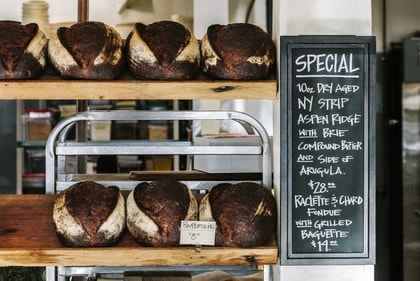 SPECIAL
10oz DRY AGED
NY STRIP
ASPEN RIDGE
WITH BRIE
COMPOUND BUTTER
AND SIDE OF
ARUGULA.
$28.00
RACLETTE & CHARD
FONDUE
WITH GRILLED
BAGUETTE
$14.00